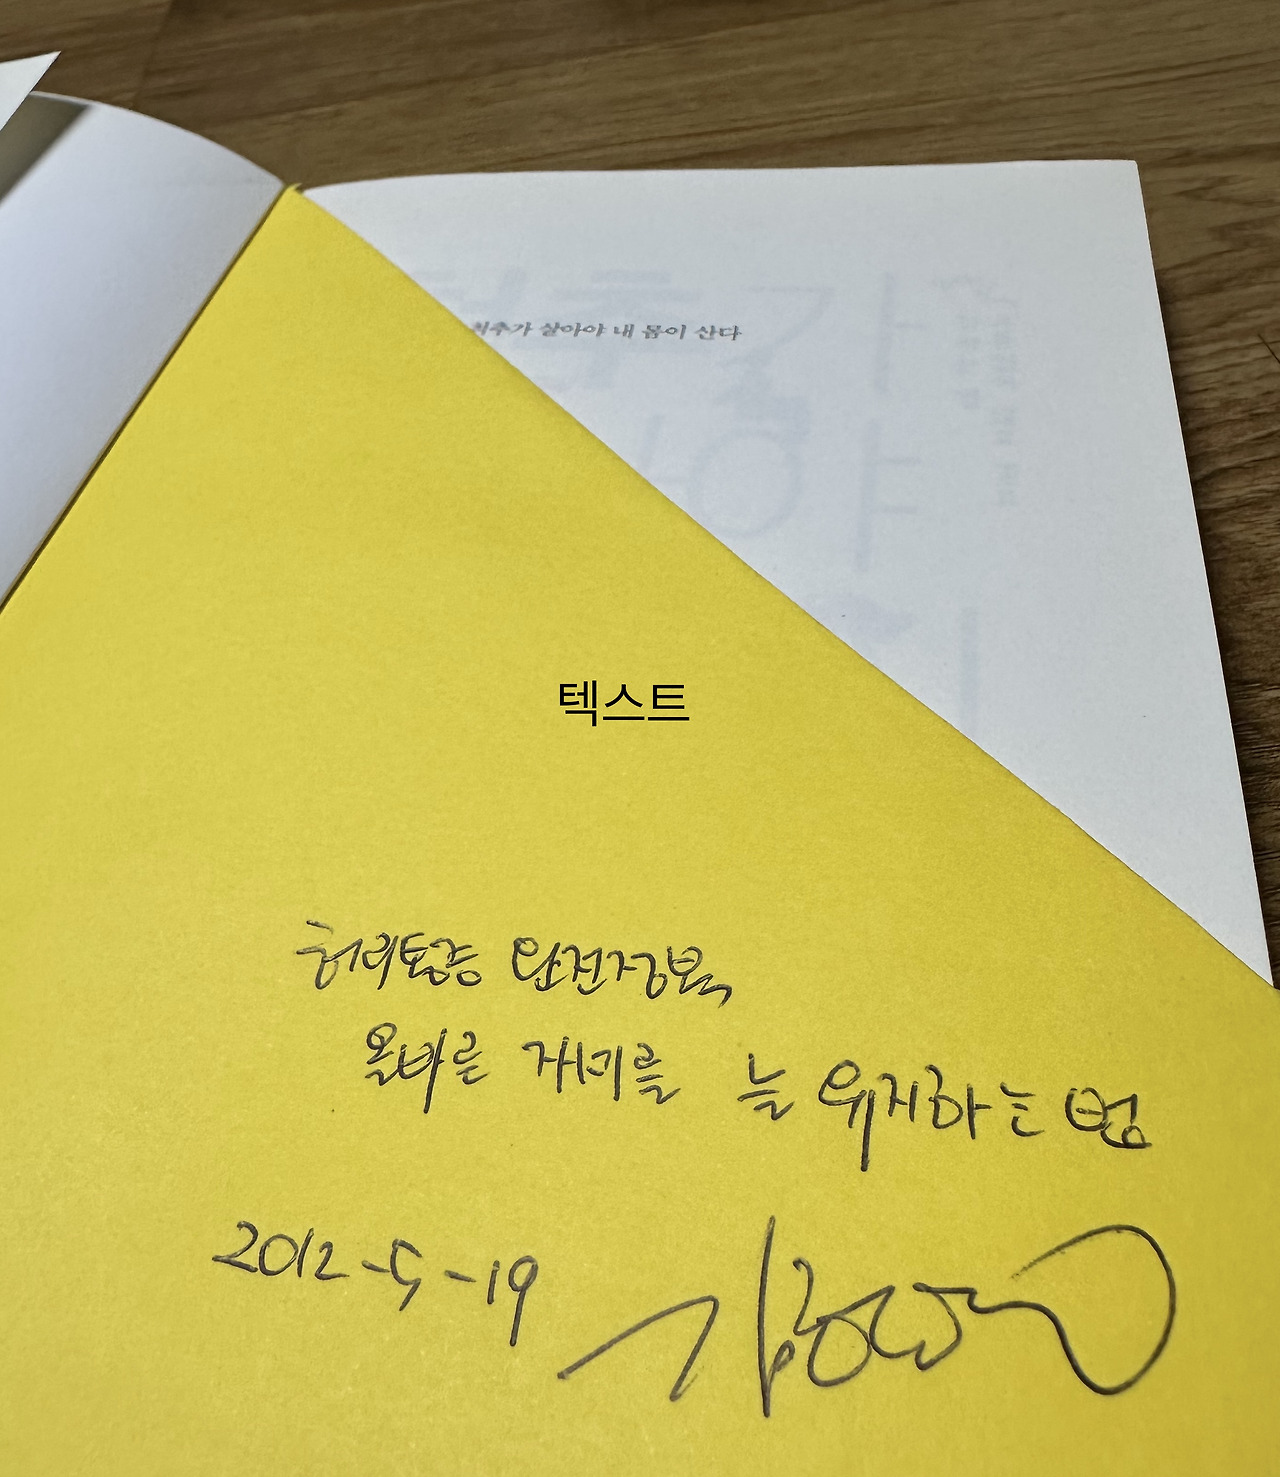 척추가 살아야 내 몸이 산다
텍스트
허리통증 완전정복
올바른 자세를 늘 유지하는 법
2012-5-19